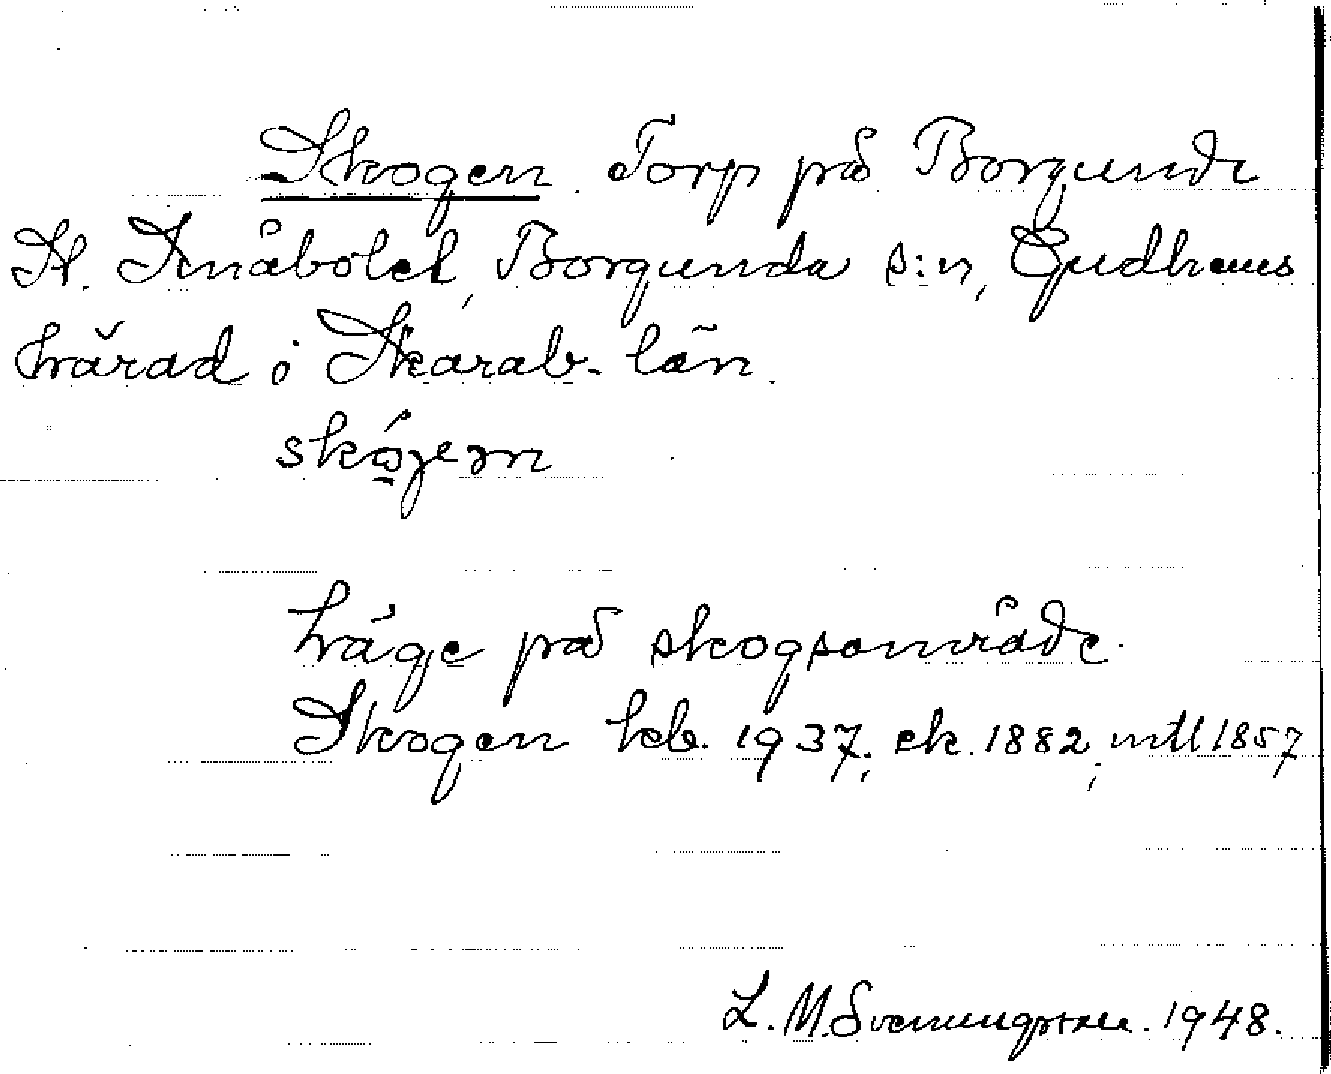 Skogen. Torp på Borgunda
St. Knäbolet, Borgunda s:n, Gudhems
härad i Skarab. län.
skó̱γen
Läge på skogsområde.
Skogen kb. 1937; ek. 1882; mtl 1857
L. M. Svenungsson. 1948.